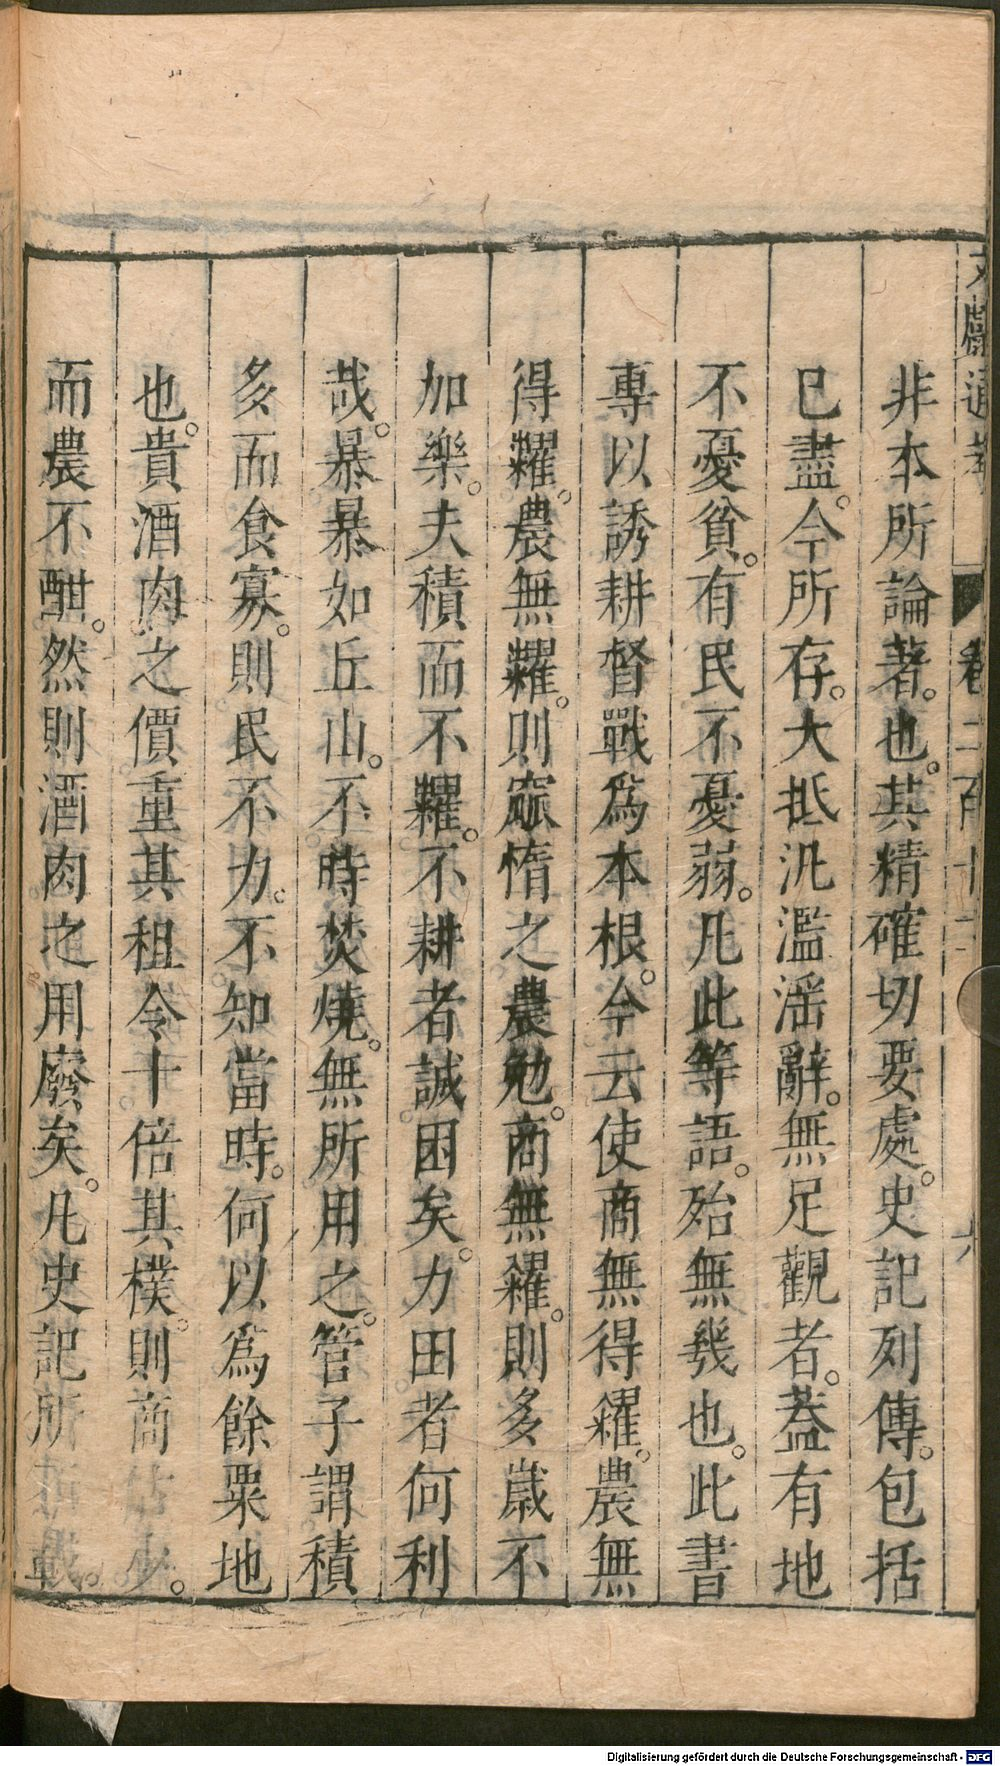 文獻通考 卷二百十二 六
非本所論著。也。其精確切要處。史記列傳。包括
已盡。今所存。大抵汎濫滛辭。無足觀者。蓋有地
不憂貧。有民不憂弱。凡此等語。殆無幾也。此書
專以誘耕督戰爲本根。今云使商無得糴。農無
得糶。農無糶。則窳惰之農勉。商無糴。則多歲不
加樂。夫積而不糶。不耕者誠困矣。力田者何利
哉。暴暴如丘山。不時焚燒。無所用之。管子謂積
多而食寡。則民不力。不知當時。何以爲餘粟地
也。貴酒肉之價重其租令十倍其樸。則商估少。
而農不酣。然則酒肉之用廢矣。凡史記所載。
Digitalisierung gefördert durch die Deutsche Forschungsgemeinschaft - DFG